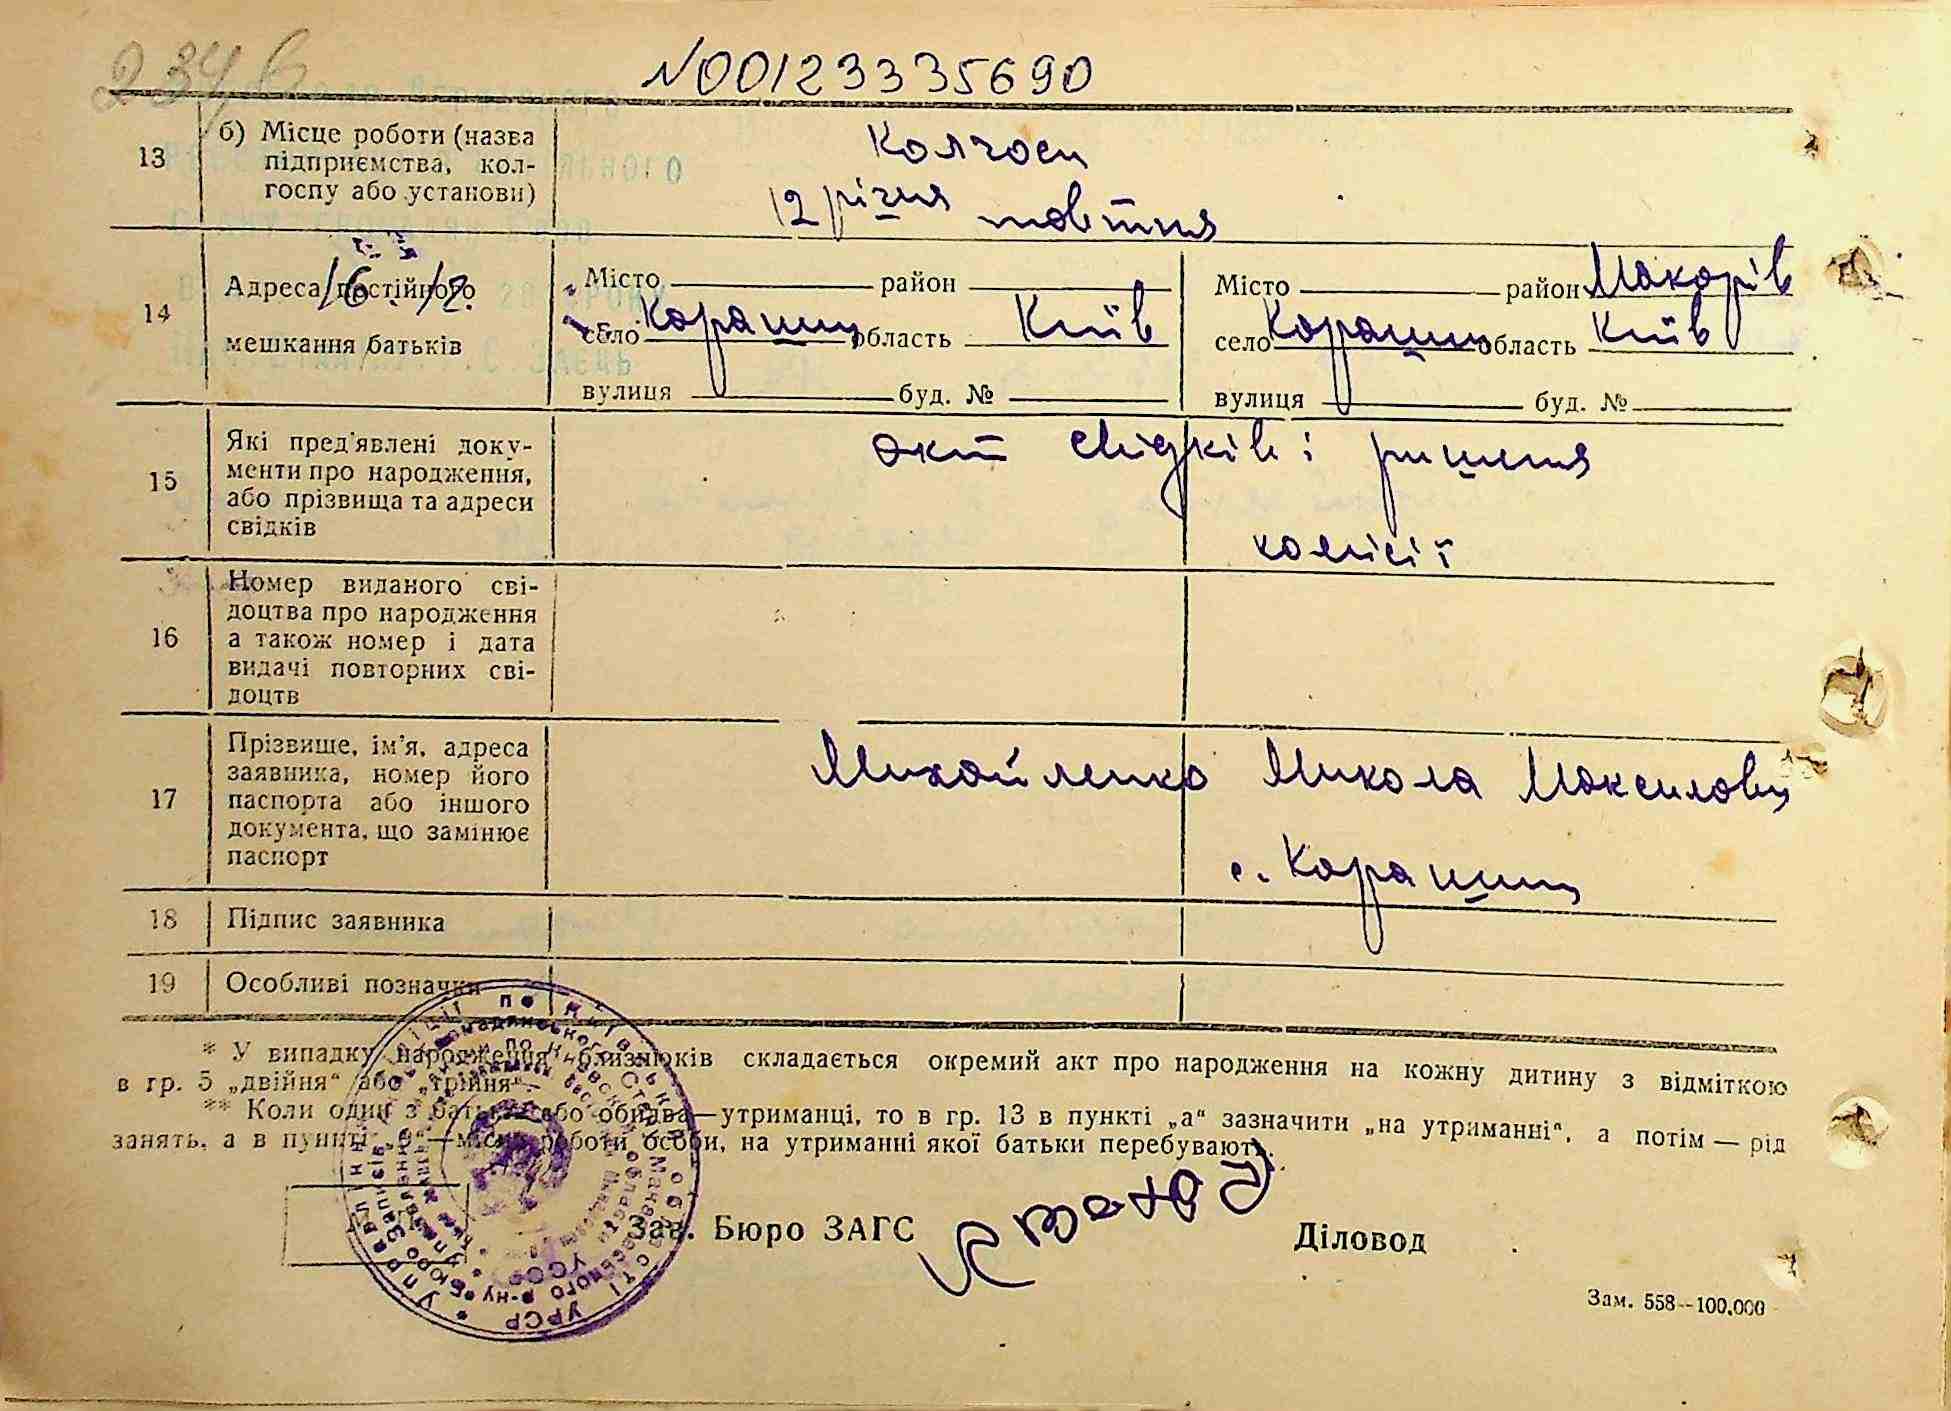 234 б
№00123335690
13
б) Місце роботи (назва
підприємства, кол-
госпу або установи)
Колгосп
12 річчя жовтня
14
Адреса постійного
мешкання батьків
16. 12.
Місто район
село Корашин область Київ
вулиця буд. №
Місто район Макарів
село Корашин область Київ
вулиця буд. №
15
Які пред'явлені доку-
менти про народження,
або прізвища та адреси
свідків
акт свідків і ришення
комісії
16
Номер виданого сві-
доцтва про народження
а також номер і дата
видачі повторних сві-
доцтв
17
Прізвище, ім'я, адреса
заявника, номер його
паспорта або іншого
документа, що замінює
паспорт
Михайленко Микола Максимович
с. Корашин
18
Підпис заявника
19
Особливі позначки
* У випадку народження близнюків складається окремий акт про народження на кожну дитину з відміткою
в гр. 5 „двійня“ або „трійня“.
** Коли один з батьків або обидва—утриманці, то в гр. 13 в пункті „а“ зазначити „на утриманні“, а потім — рід
занять, а в пункті „б“—місце роботи особи, на утриманні якої батьки перебувають.
Зав. Бюро ЗАГС
Діловод
Зам. 558--100.000